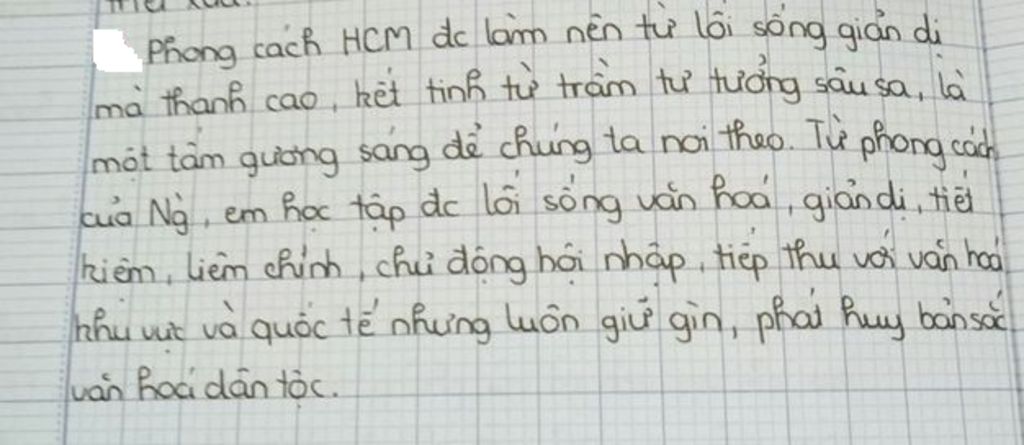 Phong cách HCM đc làm nên từ lối sống giản dị
mà thanh cao, kết tinh từ trầm tư tưởng sâu sa, là
một tấm gương sáng để chúng ta noi theo. Từ phong cách
của Ng, em học tập đc lối sống văn hoá, giản dị, tiết
kiệm, liêm chính, chủ động hội nhập, tiếp thu với văn hoá
khu vực và quốc tế nhưng luôn giữ gìn, phát huy bản sắc
văn hoá dân tộc.